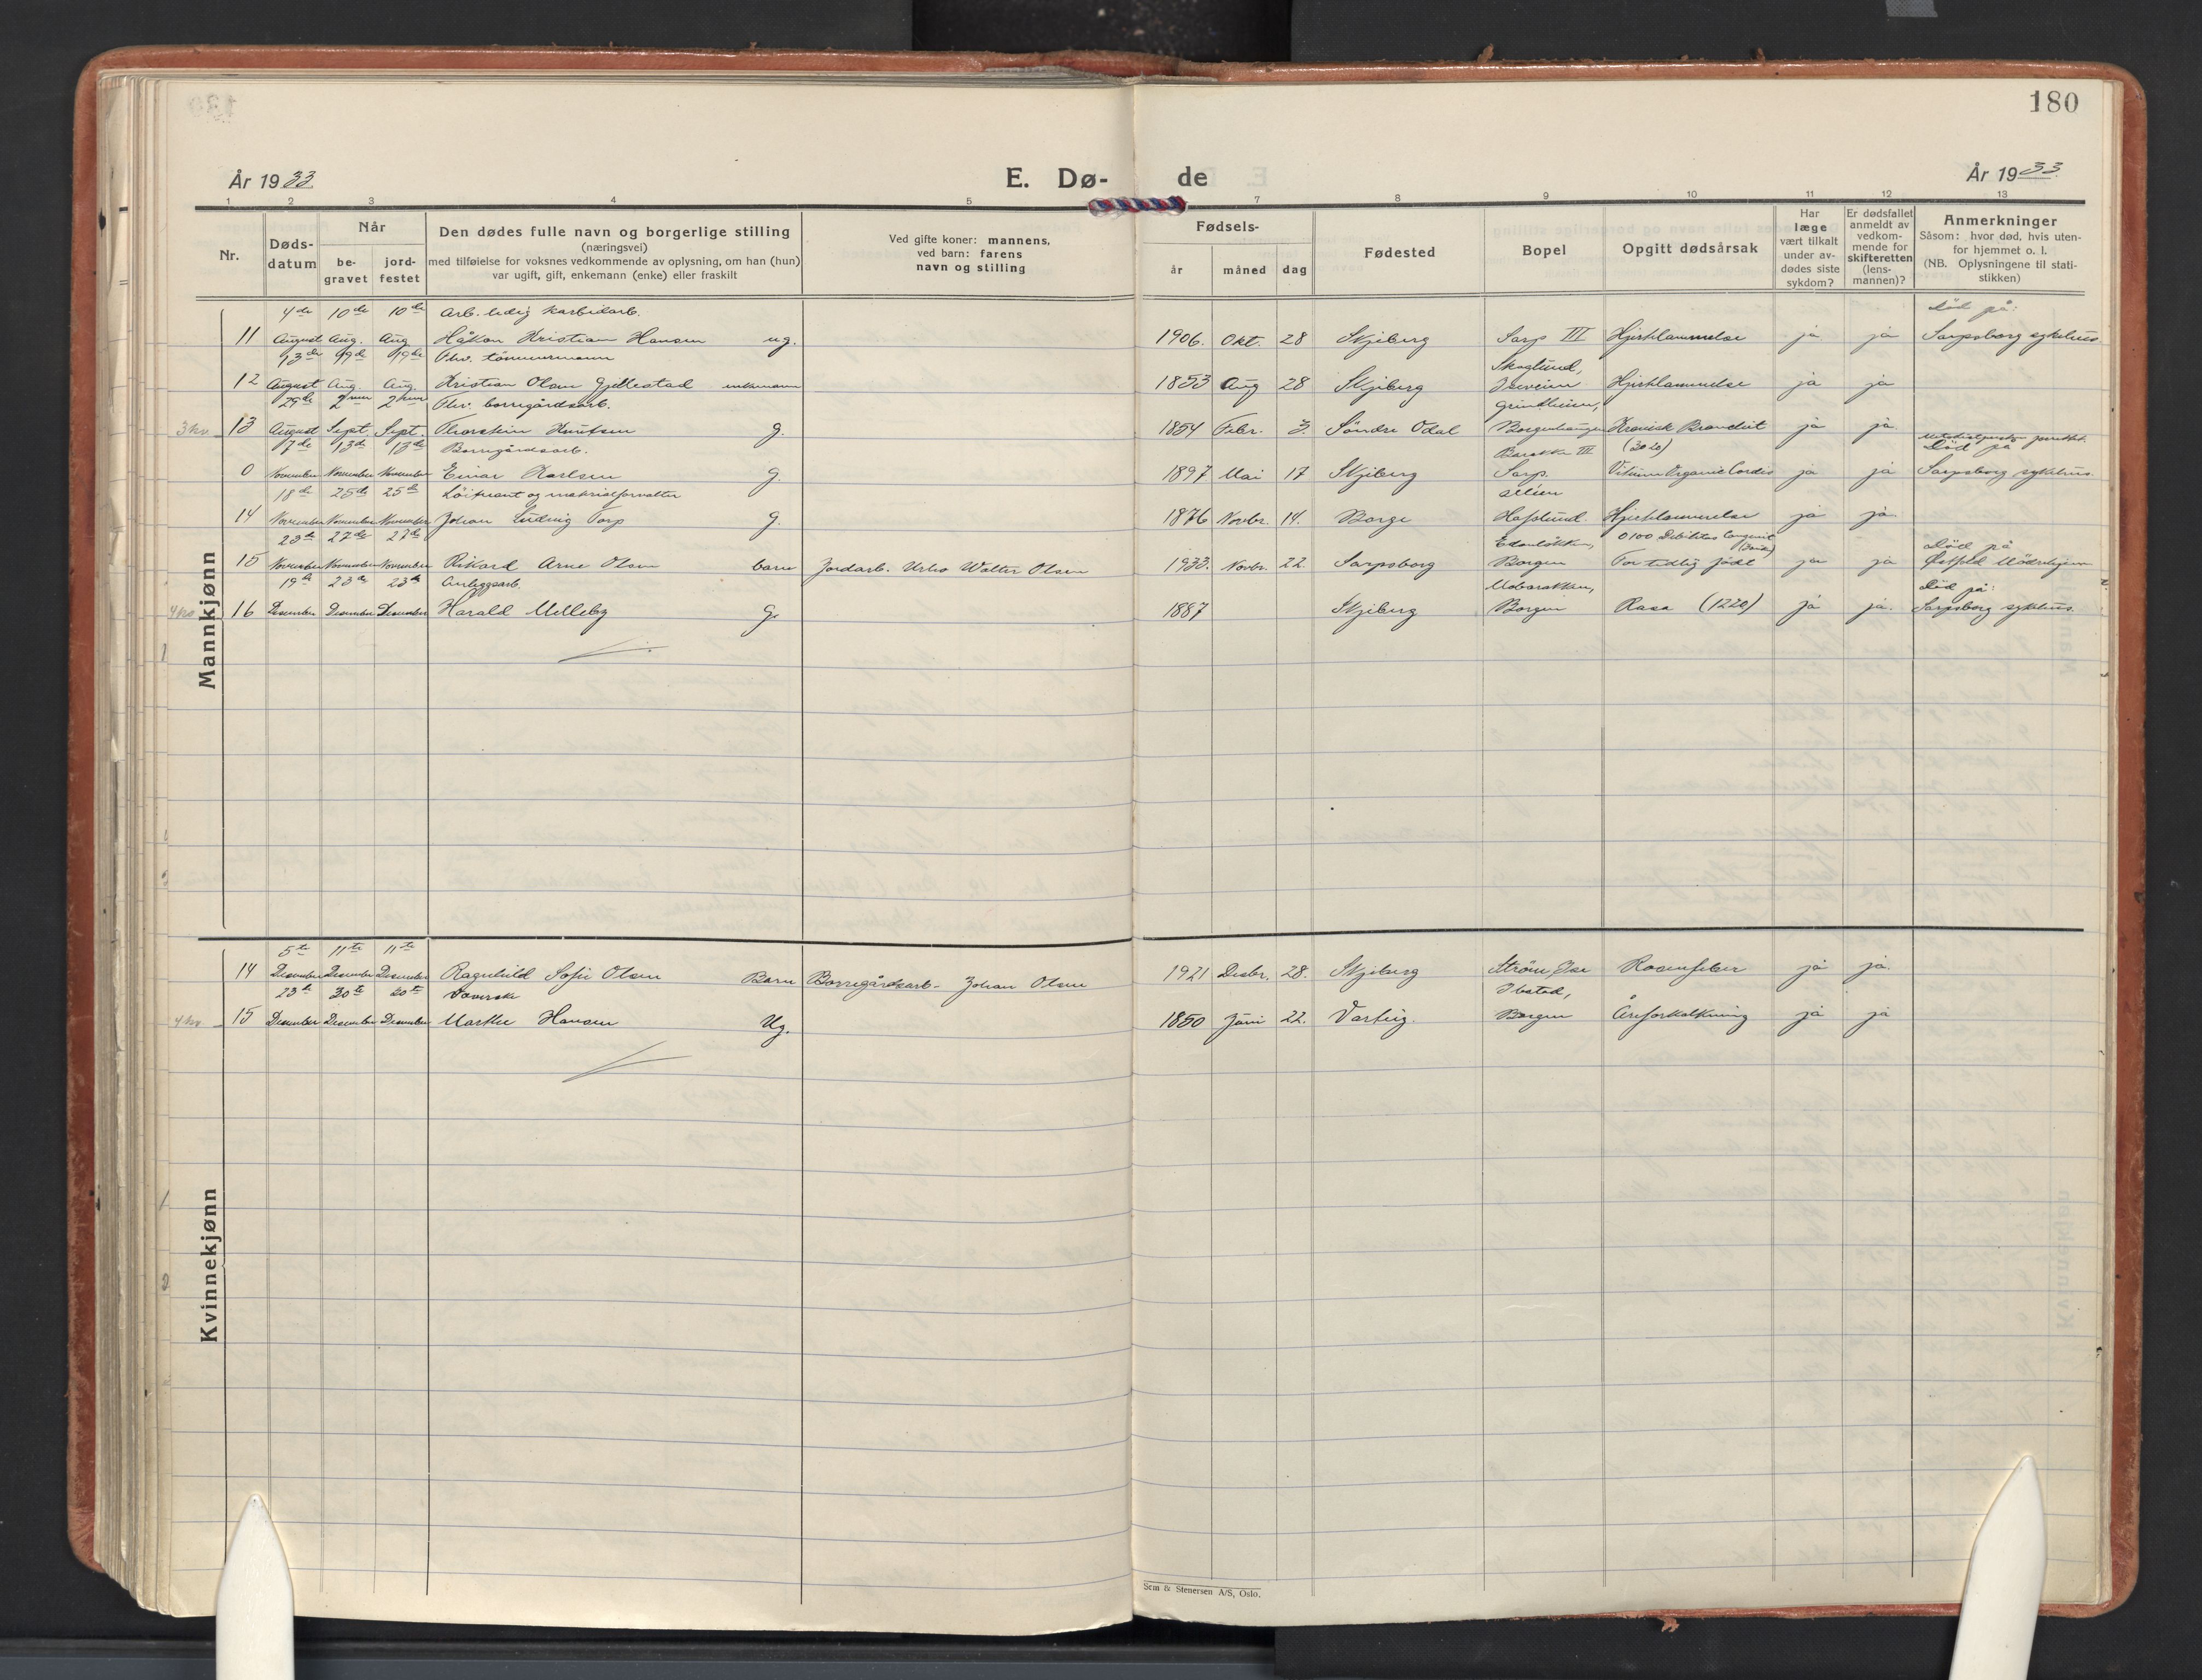 180
År 1933
E. Dø-
de
År 1933
1 2 3 4 5 7 8 9 10 11 12 13
Nr.
Døds-
datum
Når
be-
gravet
jord-
festet
Den dødes fulle navn og borgerlige stilling
(næringsvei)
med tilføielse for voksnes vedkommende av oplysning, om han (hun)
var ugift, gift, enkemann (enke) eller fraskilt
Ved gifte koner: mannens,
ved barn: farens
navn og stilling
Fødsels-
år måned dag
Fødested
Bopel
Opgitt dødsårsak
Har
læge
vært tilkalt
under av-
dødes siste
sykdom?
Er dødsfallet
anmeldt av
vedkom-
mende for
skifteretten
(lens-
mannen)?
Anmerkninger
Såsom: hvor død, hvis uten-
for hjemmet o. l.
(NB. Oplysningene til stati-
stikken)
Mannkjønn
4de 10de 10de Arb. ledig karbidarb. Död på:
11 August Aug. Aug Håkon Kristian Hansen ug. 1906. Okt. 28 Skjeberg Sarp III Hjertelammelse ja ja Sarpsborg sykehus
13de 19de 19de Fhv. tömmermann Skoglund,
12 August Aug. Aug. Kristian Olsen Gjellestad enkemann 1853 Aug 28 Skjeberg Hjertelammelse ja ja
29de 2nen 2nen Fhv. borregårdsarb. Grindheim,
3 kv. 13 August Sept. Sept. Thorstein Knutsen g. 1854 Febr. 3. Söndre Odal Borgenhaugen Kronisk Bronchit ja ja.
7de 13de 13de Borregårdsarb. Barakke III (3020) Död på
0 November November November Einar Karlsen g. 1897 Mai 17 Skjeberg Sarp. Vitium Organic Cordis ja ja Sarpsborg sykehus.
18de 25de 25de Löitnant og materialforvalter Alléen
14 November November November Johan Ludvig Torp g. 1876 Novbr. 14. Borge Hafslund. Hjertelammelse ja ja.
23de 27de 27de 0100 Debilitas Död på
15 November November November Rikard Arne Olsen barn Jordarb. Walter Olsen 1933. Novbr. 22. Sarpsborg Borgen For tidlig födt ja ja Östfold Mödrehjem
19de 23de 23de Anleggsarb. Mobarakken, Död på:
4 kv 16 Desember Desember Desember Harald Melleby g. 1887 Skjeberg Borgen Rasa (1220) ja ja. Sarpsborg sykehus.
Kvinnekjønn
5te 11te 11te
14 Desember Desember Desember Ragnhild Sofie Olsen Barn Borregårdsarb. Johan Olsen 1921 Desbr. 28. Skjeberg Ström, Ise Rosenfeber ja ja.
23de 30te 30te Væverske Ibstad,
4 kv. 15 Desember Desember Desember Marthe Hansen Ug. 1850 Juni 22. Varteig. Borgen Åreforkalkning ja ja
Sem & Stenersen A/S, Oslo.